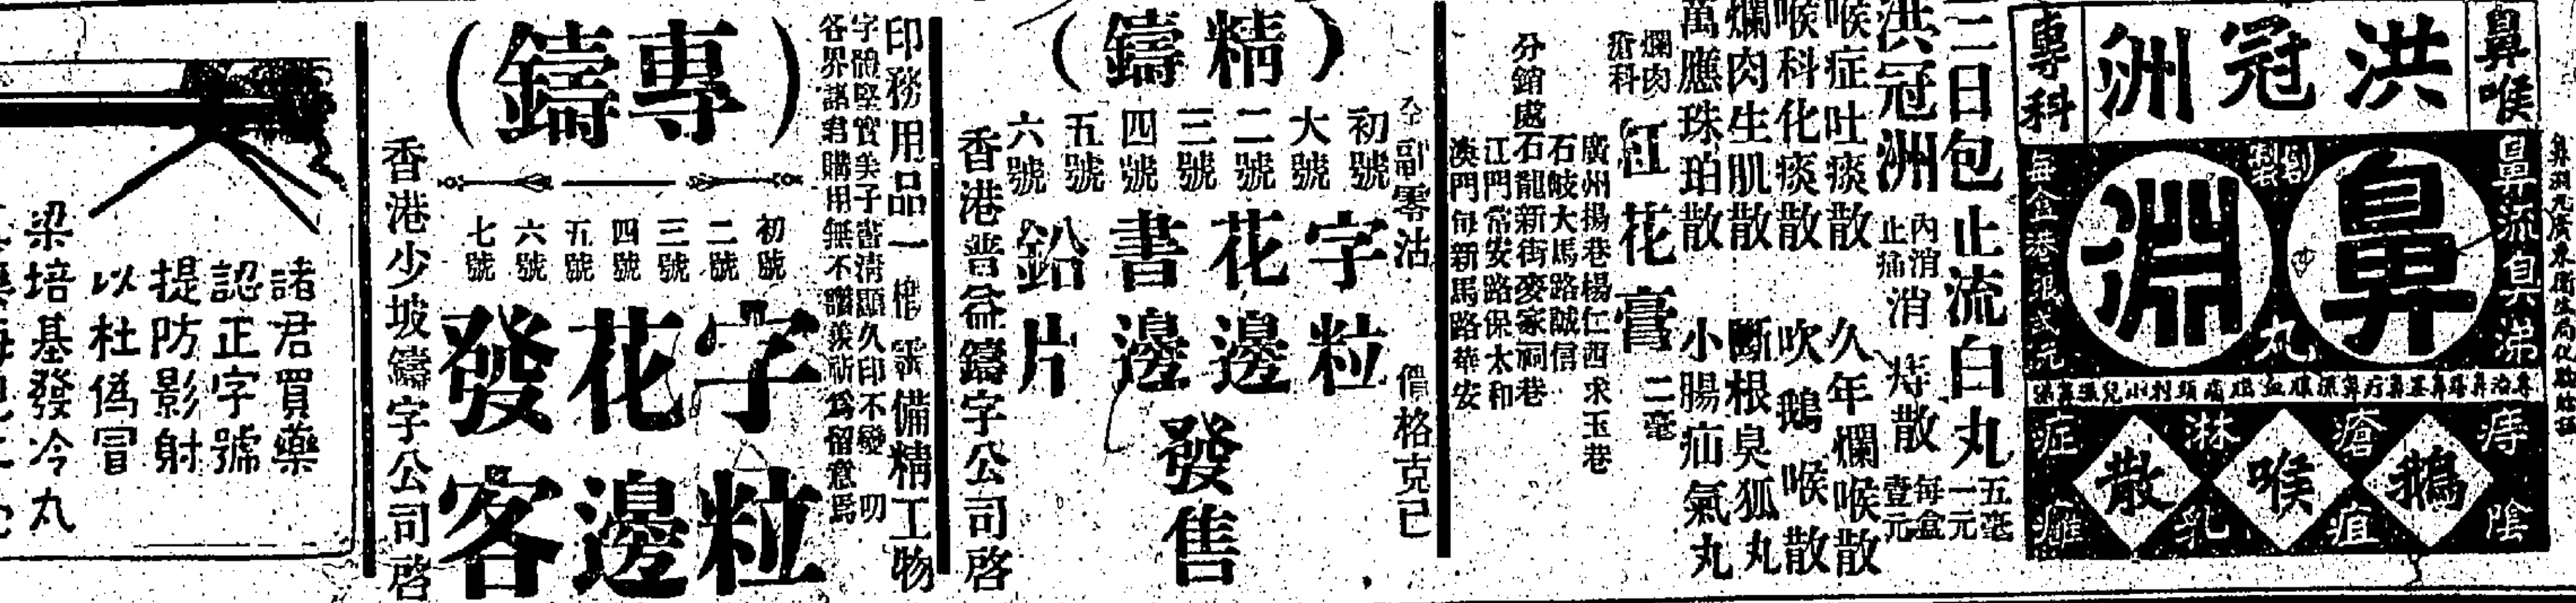 鼻喉
洪冠洲
專科
創製
鼻淵丸
痔瘡淋症
鵝喉散
陰疽乳癰
三日包止流白丸 五毫 一元
洪冠洲 內消止痛 消痔散 每盒壹元
喉症吐痰散 久年爛喉散
喉科化痰散 吹鵝喉散
爛肉生肌散 斷根臭狐丸
萬應珠珀散 小腸疝氣丸
爛肉瘡科 紅花膏 二毫
廣州楊巷楊仁西求玉巷
石岐大馬路誠信
分銷處石龍新街麥家祠巷
江門常安路保太和
澳門新馬路華安
(精鑄)
全副零沽 價格克己
初號
大號
二號
三號
四號
五號
六號
字粒
花邊
書邊
鉛片
發售
香港普益鑄字公司啓
印務用品一概零備精工物
字體堅實美子畫淸顯久印不變
各界諸君購用無不讚羨祈爲留意焉
(專鑄)
初號
二號
三號
四號
五號
六號
七號
字粒
花邊
發客
香港少坡鑄字公司啓
諸君買藥
認正字號
提防影射
以杜僞冒
梁培基發冷丸